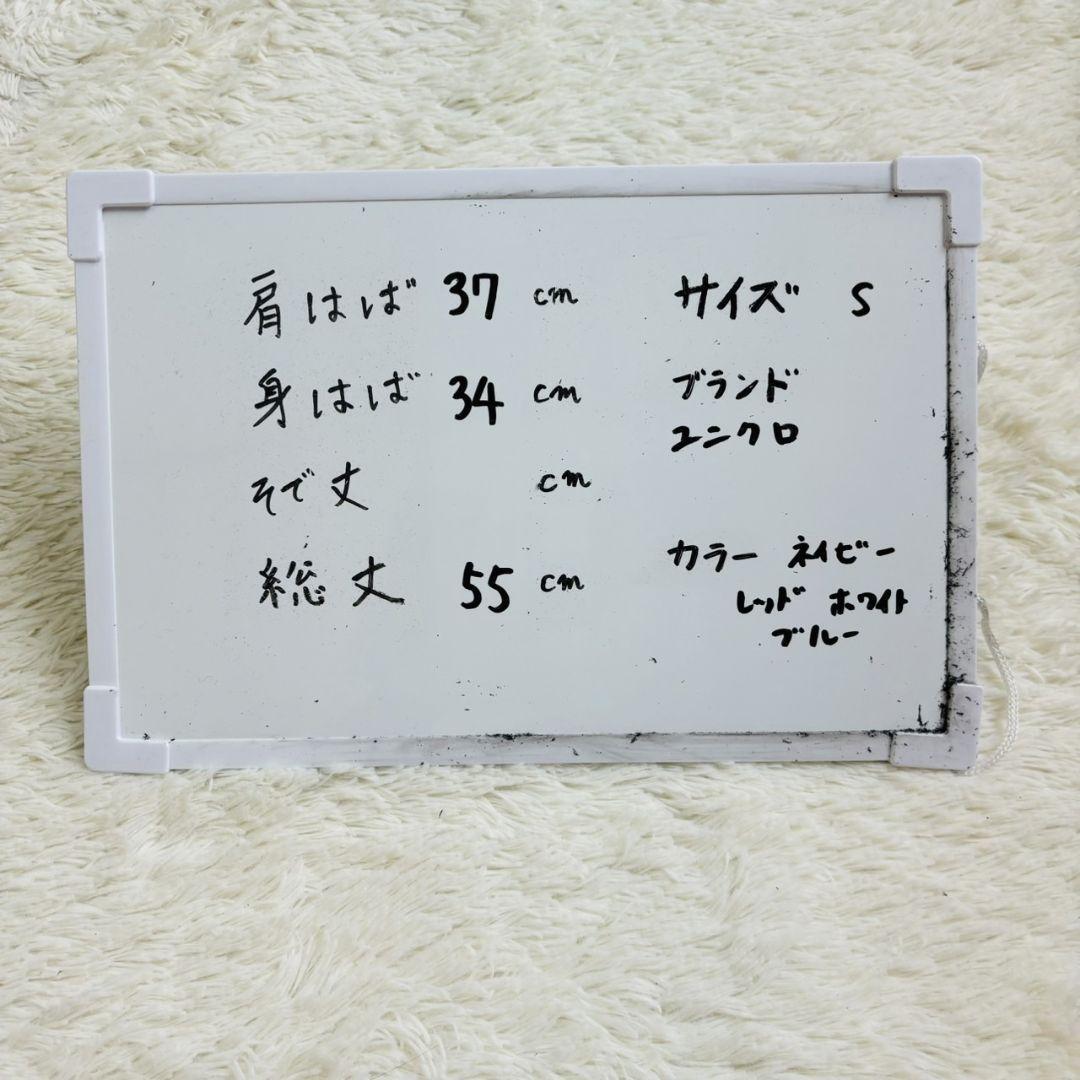 肩はば 37 cm
身はば 34 cm
そで丈 cm
総丈 55 cm
サイズ S
ブランド
ユニクロ
カラー ネイビー
レッド ホワイト
ブルー